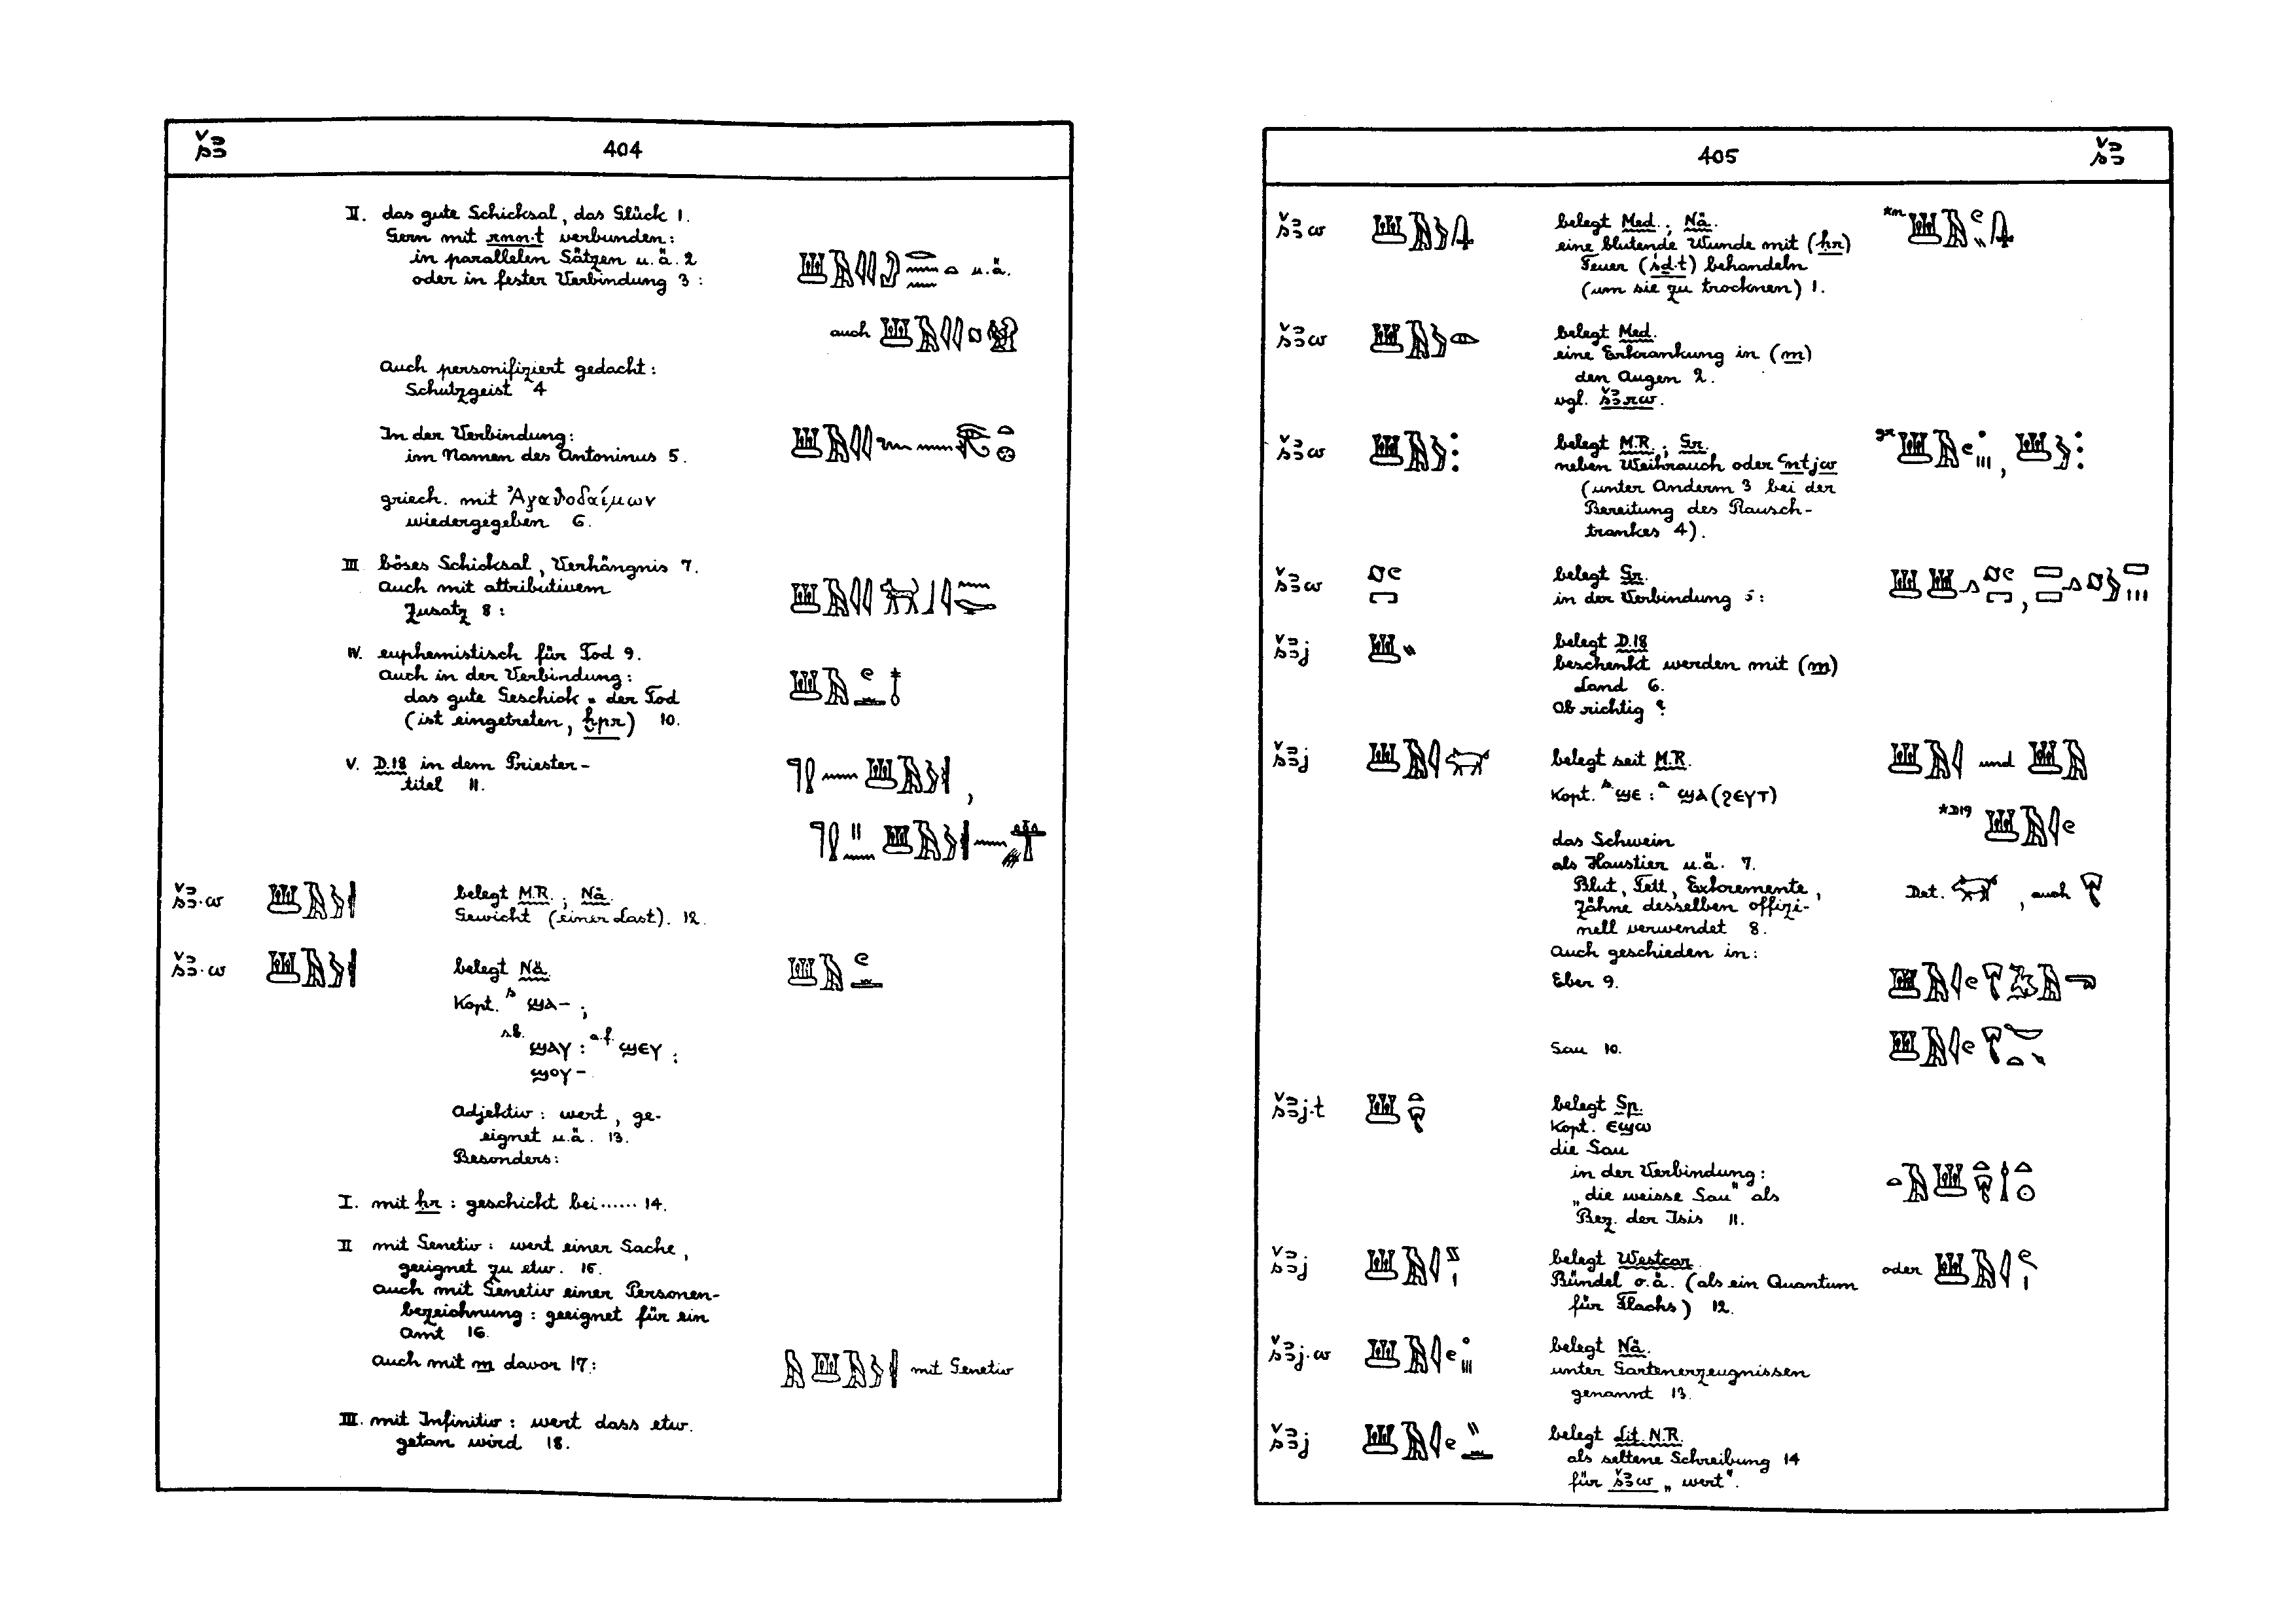 šꜣ
404
II. das gute Schicksal, das Glück 1.
Gern mit rnn.t verbunden:
in parallelen Sätzen u.ä. 2
oder in fester Verbindung 3 :
u.ä.
auch
Auch personifiziert gedacht:
Schutzgeist 4
In der Verbindung:
im Namen des Antoninus 5.
griech. mit Ἀγαθοδαίμων
wiedergegeben 6.
III böses Schicksal, Verhängnis 7.
Auch mit attributivem
Zusatz 8 :
IV. euphemistisch für Tod 9.
Auch in der Verbindung:
das gute Geschick = der Tod
(ist eingetreten, ḫpr) 10.
V. D.18 in dem Priester-
titel 11.
šꜣ.w
belegt M.R.; Nä.
Gewicht (einer Last). 12.
šꜣ.w
belegt Nä.
Kopt. s ϣⲁ- ;
s.b. ϣⲁⲩ : a.f. ϣⲉⲩ ;
ϣⲟⲩ-
Adjektiv: wert, ge-
eignet u.ä. 13.
Besonders:
I. mit ḥr : geschickt bei...... 14.
II mit Genetiv: wert einer Sache,
geeignet zu etw. 15.
Auch mit Genetiv einer Personen-
bezeichnung: geeignet für ein
Amt 16.
Auch mit m davor 17:
mit Genetiv
III. mit Infinitiv: wert dass etw.
getan wird 18.
405
šꜣ
šꜣw
belegt Med.; Nä.
eine blutende Wunde mit (ḥr)
Feuer (śḏ.t) behandeln
(um sie zu trocknen) 1.
*m
šꜣw
belegt Med.
eine Erkrankung in (m)
den Augen 2.
vgl. šꜣrw.
šꜣw
belegt M.R.; Gr.
neben Weihrauch oder ꜥntjw
(unter Anderm 3 bei der
Bereitung des Rausch-
trankes 4).
gr
šꜣw
belegt Gr.
in der Verbindung 5:
šꜣj
belegt D.18
beschenkt werden mit (m)
Land 6.
Ob richtig?
šꜣj
belegt seit M.R.
und
Kopt. s ϣⲉ : a ϣⲁ (ϩⲉⲩⲧ)
*D19
das Schwein
als Haustier u.ä. 7.
Blut, Fett, Exkremente,
Zähne desselben offizi-
nell verwendet 8.
Det. , auch
Auch geschieden in:
Eber 9.
Sau 10.
šꜣj.t
belegt Sp.
Kopt. ⲉϣⲱ
die Sau
in der Verbindung:
„die weisse Sau" als
Bez. der Isis 11.
šꜣj
belegt Westcar
Bündel o.ä. (als ein Quantum
für Flachs) 12.
oder
šꜣj.w
belegt Nä.
unter Gartenerzeugnissen
genannt 13.
šꜣj
belegt Lit. N.R.
als seltene Schreibung 14
für šꜣw „wert".